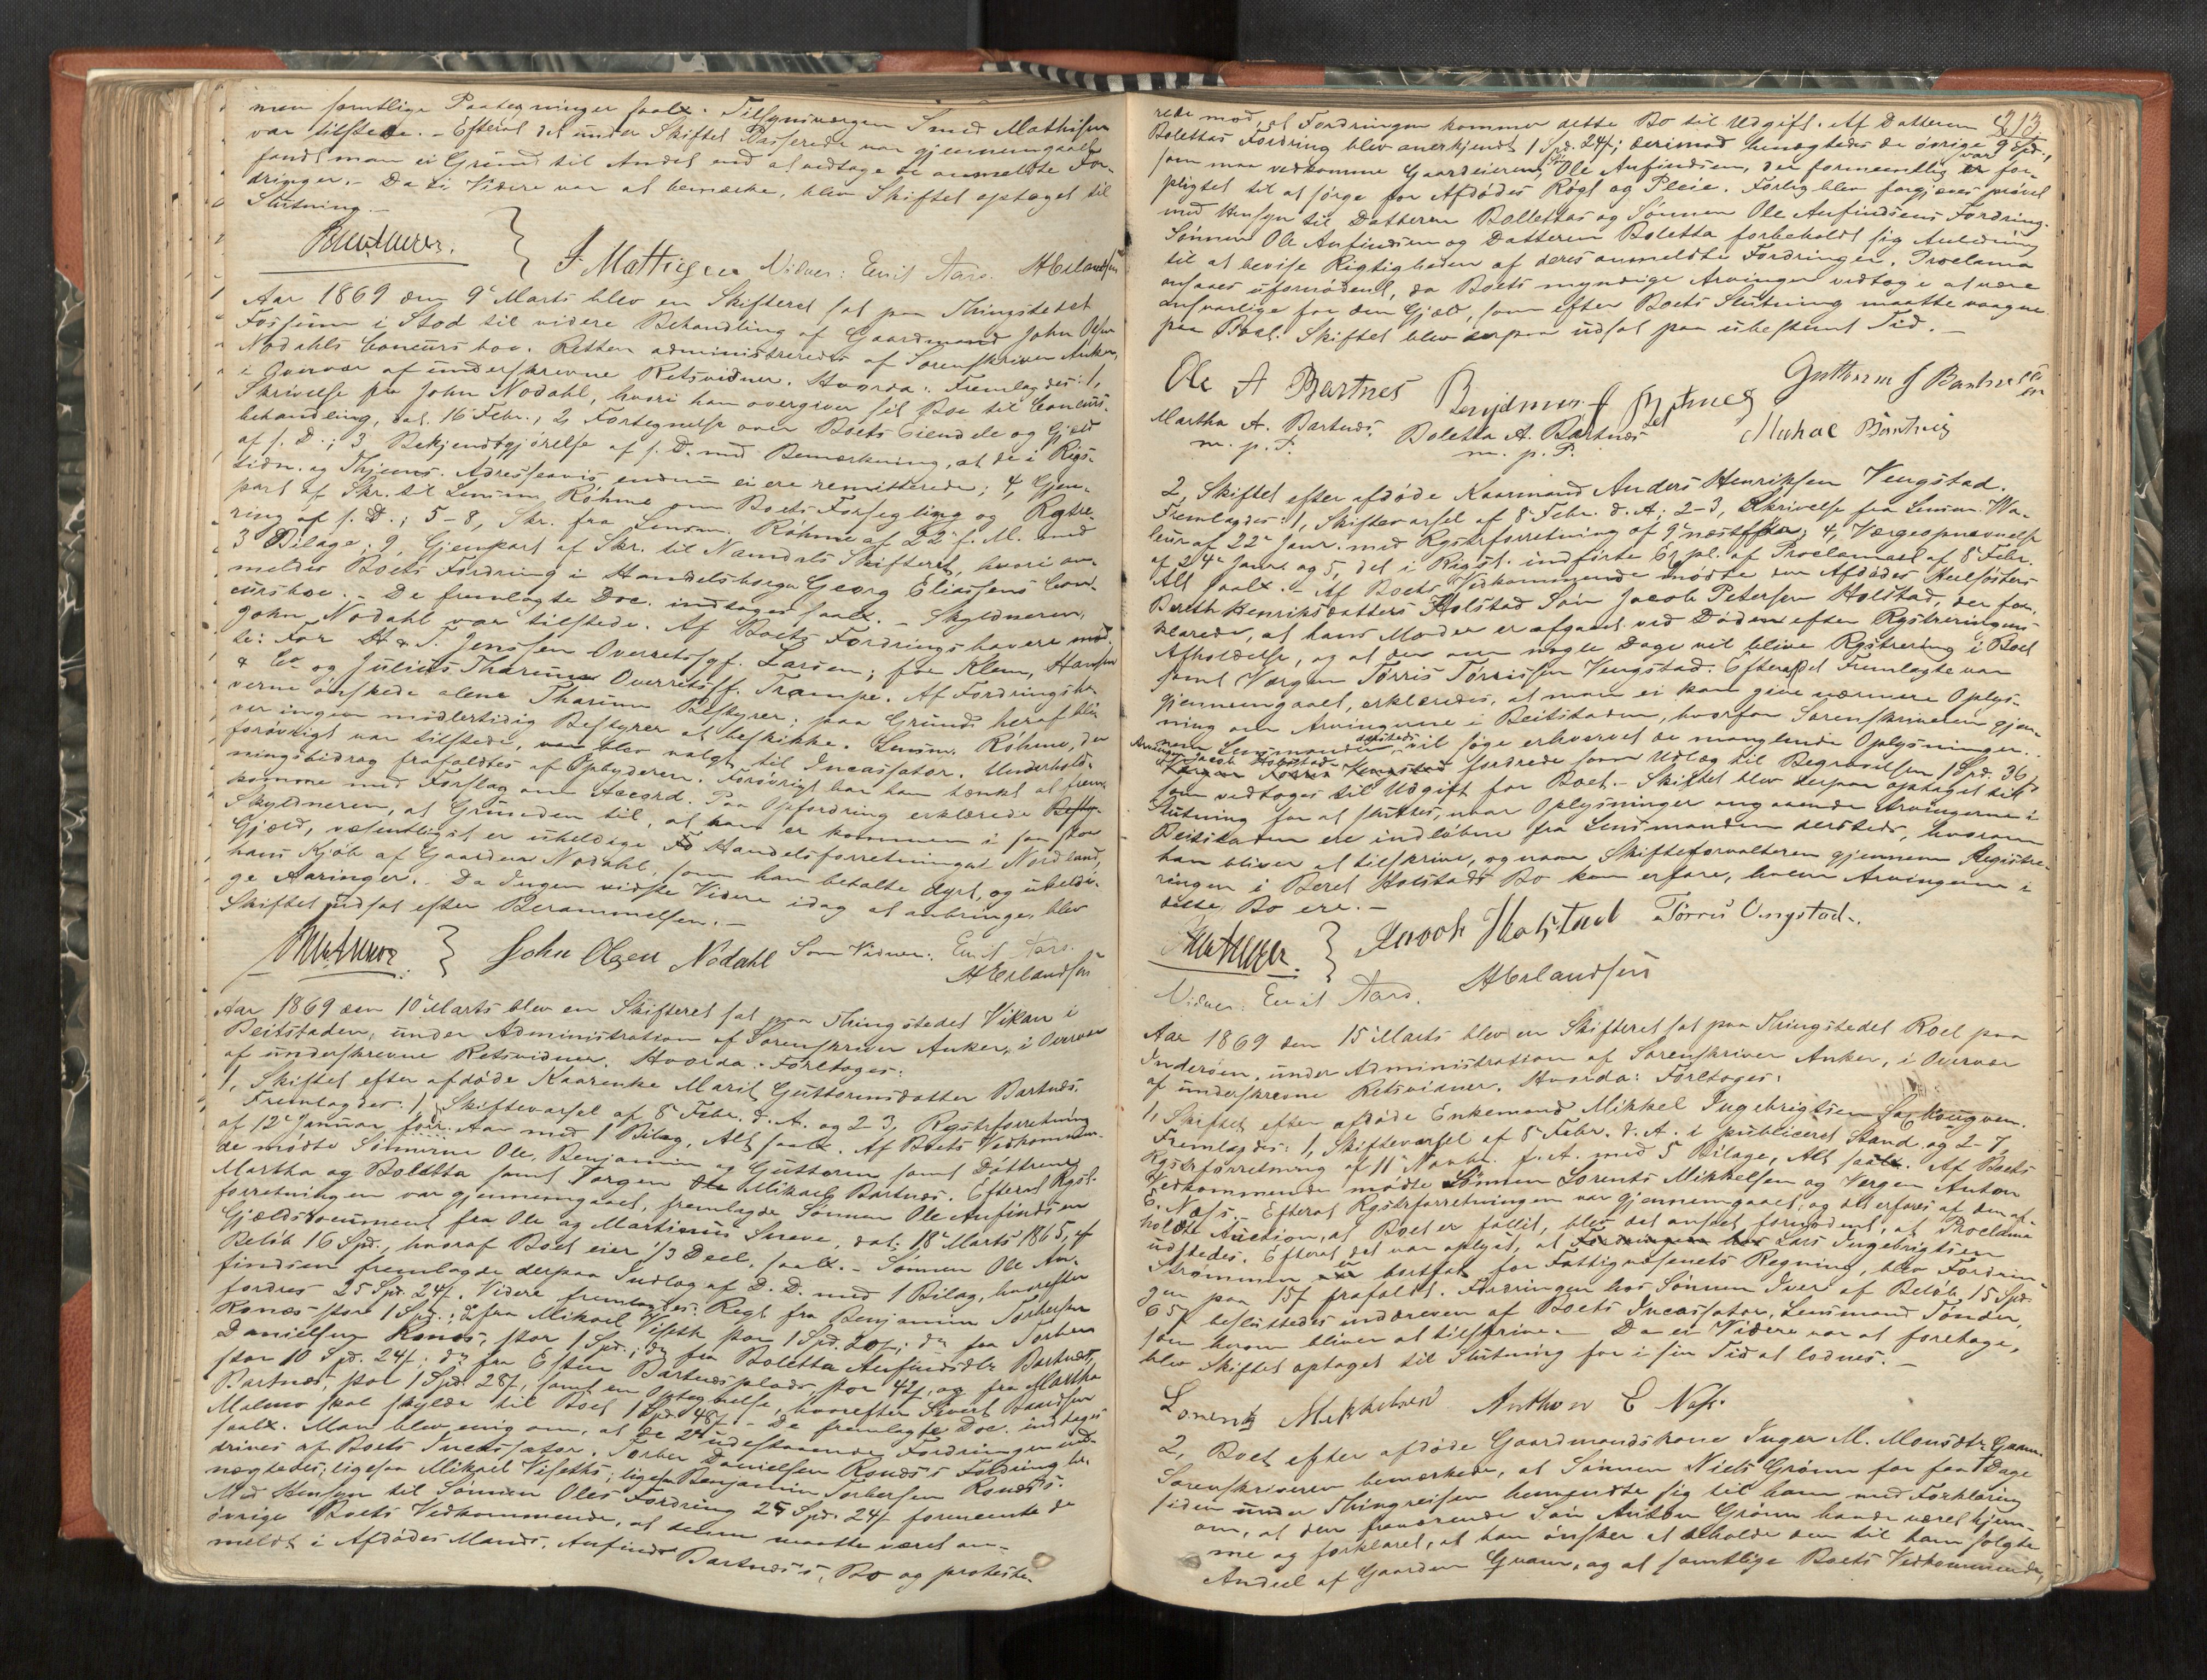 men samtlige Paategninger saalt. Tilsynsværgen Smed Mathisen
var tilstede. - Efterat det under Skiftet Passerede var gjennemgaaet
fandt man ei Grund til Andet end at vedtage de anmeldte For-
dringer. - Da ei Videre var at bemærke, blev Skiftet optaget til
Slutning. -
J. Mathiesen Vidner: Emil Aars. AErlandsen
Aar 1869 den 9e Marts blev en Skifteret sat paa Thingstedet
Fossum i Stod til videre Behandling af Gaardmand John Olsen
Nodahls Concursboe. Retten administreredes af Sorenskriver Anker,
i Overvær af underskrevne Retsvidner. Hvorda: Fremlagdes: 1,
Skrivelse fra John Nodahl, hvori han overgiver sit Boe til Concurs-
behandling, dat. 16 Febr.; 2, Fortegnelse over Boets Eiendele og Gjeld
af s. D.; 3, Bekjendtgjørelse af s. D. med Bemærkning, at de i Rigs-
tidn. og Thjems. Adresseavis endnu ei ere remitterede; 4, Gjen-
part af Skr. til Lensm. Röhme om Boets Forsegling og Rgstre-
ring af s. D.; 5-8, Skr. fra Lensm. Röhme af 22e f. M. med
3 Bilage; 9, Gjenpart af Skr. til Namdals Skifteret, hvori an-
meldes Boets Fordring i Handelsborger Georg Eliassens Con-
cursboe. - De fremlagte Doc. indtages saalt. - Skyldneren,
John Nodahl var tilstede. Af Boets Fordringshavere mød-
te: For H & T. Jenssen Overretssgf. Larsen; for Klem, Hansen
& Co og Julius Tharum Overretssf. Trampe. Af Fordringsha-
verne ønskede alene Tharum Bestyrer; paa Grund heraf blev
ver ingen midlertidig Bestyrer at beskikke. Lensm. Röhme, der
forøvrigt var tilstede, blev valgt til Incassator. Underhold-
ningsbidrag frafaldtes af Opbyderen. Forøvrigt har han tænkt at frem-
komme med Forslag om Accord. Paa Opfordring erklærede
Skyldneren, at Grunden til, at han er kommen i saa stor
Gjæld, væsentligst er uheldige Handelsforretninger Nordland,
hans Kjøb af Gaarden Nodahl, som han betalte dyrt, og uheldi-
ge Aaringer. Da Ingen vidste Videre idag at anbringe, blev
Skiftet udsat efter Berammelsen. -
John Olsen Nodahl Som Vidner: Emil Aars.
AErlandsen
Aar 1869 den 10e Marts blev en Skifteret sat paa Thingstedet Vikan i
Beitstaden, under Administration af Sorenskriver Anker, i Overvær
af underskrevne Retsvidner. Hvorda: Foretoges:
1, Skiftet efter afdøde Kaarenke Marit Guttormsdatter Bartnæs.
Fremlagdes: 1, Skiftevarsel af 8 Febr. d. A. og 2-3, Rgstrforretning
af 12e Januar før. Aar med 1 Bilag, Alt saalt. Af Boets Vedkommen-
de mødte Sønnerne Ole, Benjamin og Guttorm samt Døttrene
Martha og Boletta samt Værgen Mikael Bartnæs. Efterat Rgst-
forretningen var gjennemgaaet, fremlagde Sønnen Ole Anfindsen
Gjældsdocument fra Ole og Martinus Skreve, dat. 18e Marts 1865, af
Beløb 16 Spd., hvoraf Boet eier 1/3 Deel, saalt. - Sønnen Ole An-
findsen fremlagde derpaa Indlæg af D. D. med 1 Bilag, hvorefter
fordres 25 Spd. 24s. Videre fremlagdes: Regl. fra Benjamin Torbersen
Ronæs stor 1 Spd.; do fra Mikael Viseth stor 1 Spd. 20s; do fra Torber
Danielsen Ronæs, stor 1 Spd.; do fra Boletta Anfindsdtr Bartnæs,
stor 10 Spd. 24s; do fra Esten Bartnæsplads stor 42s, og fra Martha
Bartnæs, stor 1 Spd. 28s, samt en Optegnelse, hvorefter Sivert Baardsen
Malmo skal skylde til Boet 1 Spd. 48s. - De fremlagte Doc. indtages
saalt. Man blev enig om, at de 2de udestaaende Fordringer ind-
drives af Boets Incassator. Torber Danielsen Ronæs's Fordring be-
nægtedes; ligesaa Mikael Viseths; ligesa Benjamin Torbersen Ronæs's.
Med Hensyn til Sønnen Oles Fordring 25 Spd. 24s formeente de
øvrige Boets Vedkommende, at denne maatte været an-
meldt i Afdødes Mands, Anfind Bartnæs's, Bo og proteste-
213
rede mod, at Fordringen kommer dette Bo til Udgift. Af Datteren
Bolettas Fordring blev anerkjendt 1 Spd. 24s; derimod benægtedes de øvrige 9 Spd.,
som maa vedkomme Gaardeieren, Ole Anfindsen, der formeentlig var for-
pligtet til at sørge for Afdødes Røgt og Pleie. Forlig blev forgjæves prøvet
med Hensyn til Datteren Bollettas og Sønnen Ole Anfindsens Fordring.
Sønnen Ole Anfindsen og Datteren Boletta forbeholdt sig Anledning
til at bevise Rigtigheden af deres anmeldte Fordringer. Proclama
ansaaes ufornødent, da Boets myndige Arvinger vedtoge at være
ansvarlige for den Gjæld, som efter Boets Slutning maatte vaagne
paa Boet. Skiftet blev derpaa udsat paa ubestemt Tid. -
Ole A Bartnes Benjamin A Bartnes Guttorm J Bartnes
Martha A. Bartnæs. Boletta A. Bartnæs Mikael Bartnes
m. p. P. m. p. P.
2, Skiftet efter afdøde Kaarmand Anders Henriksen Vengstad.
Fremlagdes: 1, Skiftevarsel af 8e Febr. d. A; 2-3, Skrivelse fra Lensm. Wa-
af 22e Janr. med Rgstrforretning af 9e næstfhen; 4, Værgeopnævnelse
af 24e Janr. og 5, det i Rigst. indførte Expl. af Proclamaet af 8e Febr.
Alt saalt. - Af Boets Vedkommende mødte den Afdødes Heelsøsters
Bereth Henriksdatters Holstad Søn Jacob Petersen Holstad, der for-
klarede, at hans Moder er afgaaet ved Døden efter Rgstreringens
Afholdelse, og at der om nogle Dage vil blive Rgstrering i Boet
samt Værgen Torris Torrissen Vengstad. Efterat det Fremlagte var
gjennemgaaet, erklæredes, at man ei kan give nærmere Oplys-
ning om Arvingerne i Beitstaden, hvorfor Sorenskriveren gjen-
nem Lensmanden dersteds vil søge erhvervet de manglende Oplysninger.
Arvingen Jacob Holstad fordrede som Udlæg til Begravelsen 1 Spd. 36s
som vedtoges til Udgift for Boet. - Skiftet blev derpaa optaget til
Slutning for at sluttes, naar Oplysninger angaaende Arvingerne i
Beitstaden ere indløbne fra Lensmanden dersteds, hvorom
han bliver at tilskrive, og naar Skifteforvalteren gjennem Registre-
ringen i Beret Holstads Bo kan erfare, hvem Arvingerne i
dette Bo ere. -
Jacob Holstad Torris Vngstad.
Vidner: Emil Aars. AErlandsen
Aar 1869 den 15e Marts blev en Skifteret sat paa Thingstedet Roel paa
Inderøen, under Administration af Sorenskriver Anker, i Overvær
af underskrevne Retsvidner. Hvorda: Foretoges:
1, Skiftet efter afdøde Enkemand Mikkel Ingebrigtsen
Fremlagdes: 1, Skiftevarsel af 8e Febr. d. A. i publiceret Stand og 2-7,
Rgstrforretning af 11e Novbr. f. A. med 5 Bilage, Alt saalt. Af Boets
Vedkommende mødte Sønnen Lorents Mikkelsen og Værgen Anton
E. Næss. - Efterat Rgstrforretningen var gjennemgaaet, og det erfares af den af-
holdte Auction, at Boet er fallit, blev det anseet fornødent, at Proclama
udstedes. Efterat det var oplyst, at Lars Ingebrigtsen
Strømmen er bortsat for Fattigvæsenets Regning, blev Fordrin-
gen paa 15s frafaldt. Fordringen hos Sønnen Iver af Beløb 15 Spd.
65s besluttedes inddreven af Boets Incassator, Lensmand Tønder,
som herom bliver at tilskrive. - Da ei Videre var at foretage,
blev Skiftet optaget til Slutning for i sin Tid at lodnes. -
Lorents Mikkelsen Anthon E Næss.
2, Boet efter afdøde Gaardmandskone Inger M. Monsdtr Gran.
Sorenskriveren bemærkede, at Sønnen Niels Grønn for faa Dage
siden under Thingreisen henvendte sig til ham med Forklaring
om, at den fraværende Søn Anton Grønn havde været hjem-
me og forklaret, at han ønsker at beholde den til ham solgte
Andeel af Gaarden Gran, og at samtlige Boets Vedkommende,